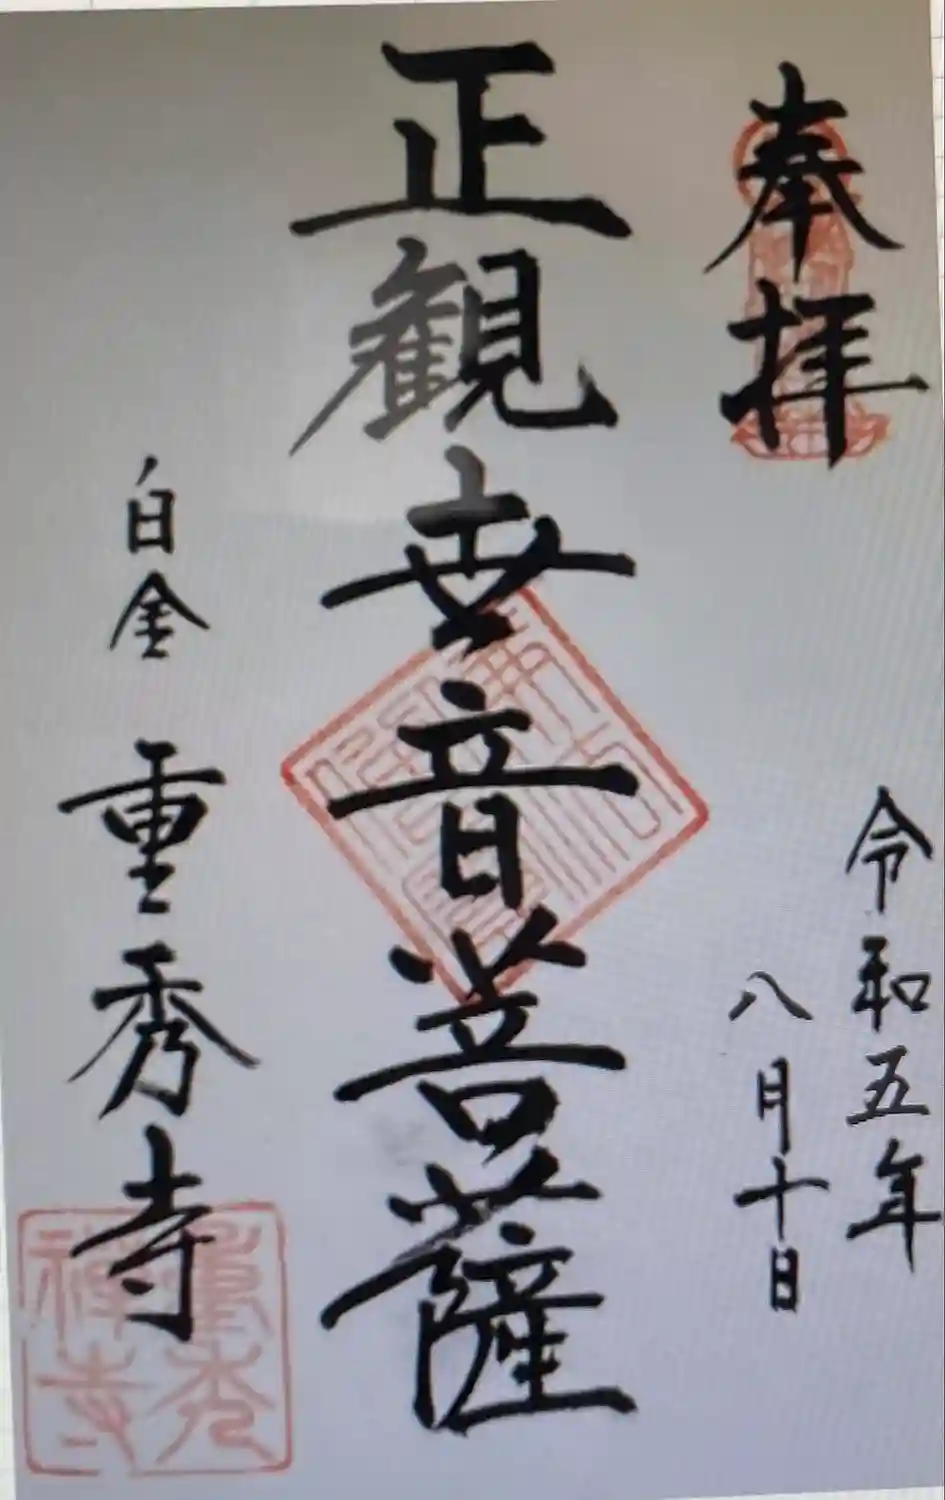 奉拝
令和五年
八月十日
正観世音菩薩
白金 重秀寺
重秀禅寺